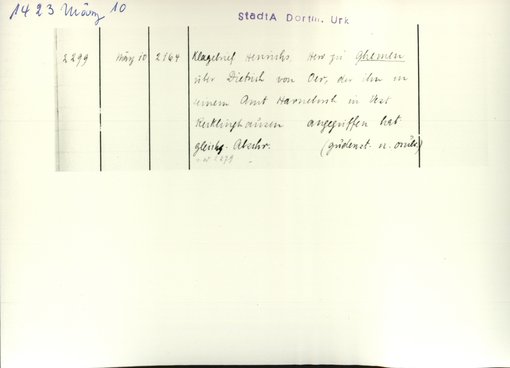 1423 März 10
StadtA Dortm. Urk
2299 März 10 2164 Klagebrief Heinrichs Herr zu Ghemen
über Dietrich von Oer, der ihn in
seinem Amt Harnebush in Vest
Recklinghausen angegriffen hat
gleichz. Abschr.